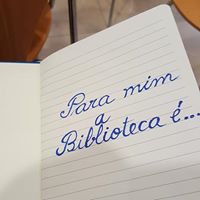 Para mim
a
Biblioteca é...